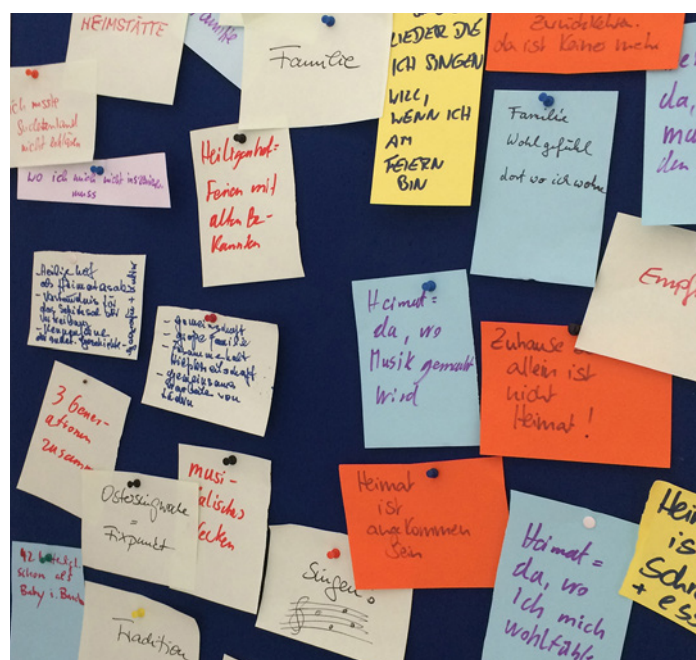 HEIMSTÄTTE
Familie
LIEDER DIE
ICH SINGEN
WILL,
WENN ICH
AM
FEIERN
BIN
Zurückkehren.
da ist keiner mehr
da,
den
ich müsste
Sudetenland
nicht erklären
wo ich mich nicht
muss
Heiligenhof =
Ferien mit
alten Be-
kannten
Familie
Wohlgefühl
dort wo ich wohne
Heiligenhof
als Heimatersatz
- Verständnis für
das Schicksal der
Vertreibung
- gemeinschaft
- große Familie
- Zusammenhalt
Hilfsbereitschaft
- gemeinsame
Heimat =
da, wo
Musik gemacht
wird
Zuhause
allein ist
nicht
Heimat!
Empf
3 Gener-
ationen
zusamm
musi-
alisches
ecken
Ostersingwoche
=
Fixpunkt
Heimat
ist
angekommen
sein
Singen
Heimat =
da, wo
Ich mich
wohlfühle
Hei
is
Schr
+ ess
schon als
Baby i.
Tradition